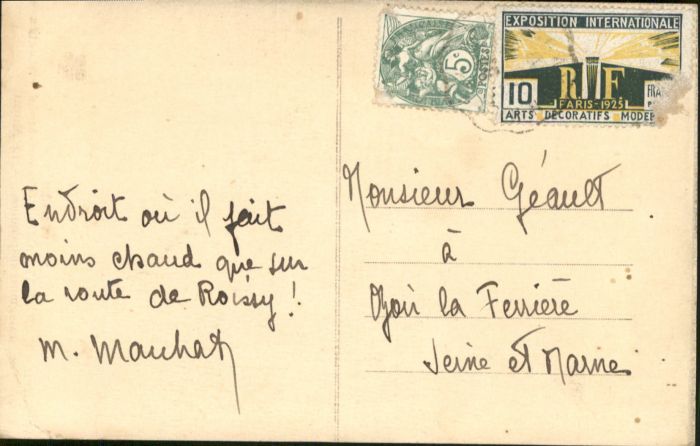 Endroit où il fait
moins chaud que sur
la route de Roissy !
M. Mauchat
5c
POSTES
EXPOSITION INTERNATIONALE
10
RF
FRA
PARIS-1925
ARTS DÉCORATIFS MODER
Monsieur Géault
à
Ozoir la Ferrière
Seine et Marne